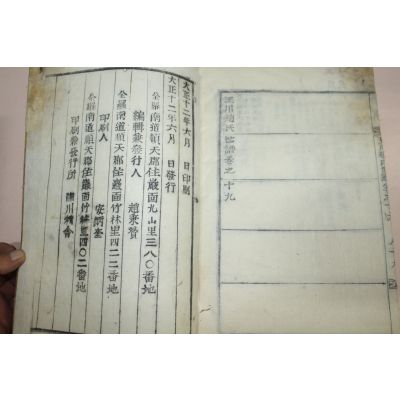 玉川趙氏世譜卷之十九
大正十二年六月 日印刷
大正十二年六月 日發行
全羅南道順天郡住巖面九山里三八〇番地
編輯兼發行人 趙秉
全羅南道順天郡住巖面竹林里四二二番地
印刷人 安
全羅南道順天郡住巖面竹林里四〇二番地
印刷兼發行所 川 會